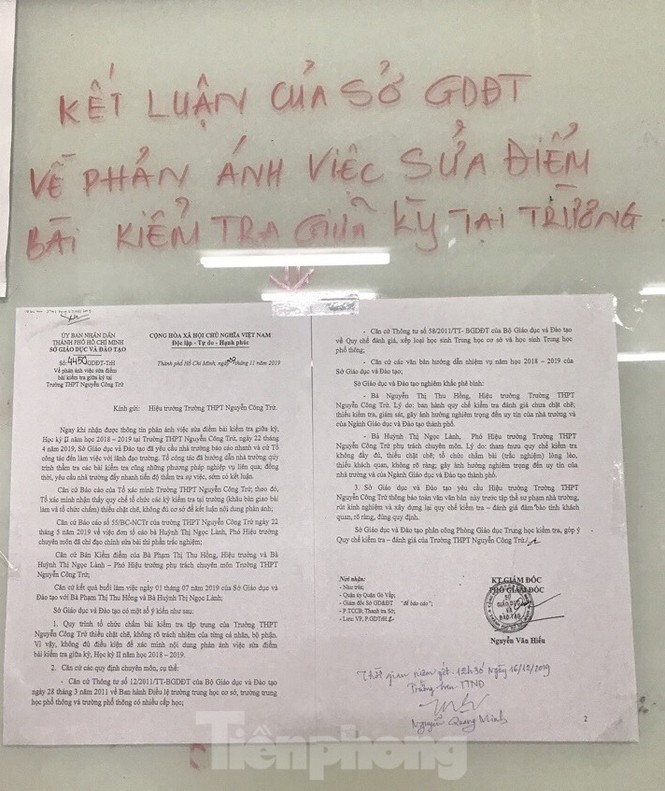 KẾT LUẬN CỦA SỞ GDĐT
VỀ PHẢN ÁNH VIỆC SỬA ĐIỂM
BÀI KIỂM TRA GIỮA KỲ TẠI TRƯỜNG
ỦY BAN NHÂN DÂN
THÀNH PHỐ HỒ CHÍ MINH
SỞ GIÁO DỤC VÀ ĐÀO TẠO
Số: 4450/GDĐT-TrH
Về phản ánh việc sửa điểm
bài kiểm tra giữa kỳ tại
Trường THPT Nguyễn Công Trứ
CỘNG HÒA XÃ HỘI CHỦ NGHĨA VIỆT NAM
Độc lập - Tự do - Hạnh phúc
Thành phố Hồ Chí Minh, ngày 11 năm 2019
Kính gửi: Hiệu trưởng Trường THPT Nguyễn Công Trứ.
Ngay khi nhận được thông tin phản ánh việc sửa điểm bài kiểm tra giữa kỳ,
Học kỳ II năm học 2018 – 2019 tại Trường THPT Nguyễn Công Trứ, ngày 22 tháng
4 năm 2019, Sở Giáo dục và Đào tạo đã yêu cầu nhà trường báo cáo nhanh và cử Tổ
công tác đến làm việc với lãnh đạo trường. Tổ công tác đã hướng dẫn nhà trường quy
trình thẩm tra các bài kiểm tra cũng những phương pháp nghiệp vụ liên qua; đồng
thời, yêu cầu nhà trường đẩy nhanh tiến độ thẩm tra sự việc, sớm có kết luận.
Căn cứ Báo cáo của Tổ xác minh Trường THPT Nguyễn Công Trứ; theo đó,
Tổ xác minh nhận thấy quy chế tổ chức các kỳ kiểm tra tại trường (khâu bàn giao bài
làm và tổ chức chấm) thiếu chặt chẽ, không đủ cơ sở để kết luận nội dung phản ánh;
Căn cứ Báo cáo số 55/BC-NCTr của trường THPT Nguyễn Công Trứ ngày 22
tháng 5 năm 2019 về việc đơn tố cáo bà Huỳnh Thị Ngọc Lành, Phó Hiệu trưởng
chuyên môn đã chỉ đạo chỉnh sửa bài thi phần trắc nghiệm;
Căn cứ Bản Kiểm điểm của Bà Phạm Thị Thu Hồng, Hiệu trưởng và Bà
Huỳnh Thị Ngọc Lành – Phó Hiệu trưởng phụ trách chuyên môn Trường THPT
Nguyễn Công Trứ;
Căn cứ kết quả buổi làm việc ngày 01 tháng 07 năm 2019 của Sở Giáo dục và
Đào tạo với Bà Phạm Thị Thu Hồng và Bà Huỳnh Thị Ngọc Lành;
Sở Giáo dục và Đào tạo có một số ý kiến như sau:
1. Quy trình tổ chức chấm bài kiểm tra tập trung của Trường THPT
Nguyễn Công Trứ thiếu chặt chẽ, không rõ trách nhiệm của từng cá nhân, bộ phận.
Vì vậy, không đủ điều kiện để xác minh nội dung phản ánh việc sửa điểm bài
kiểm tra giữa kỳ, Học kỳ II năm học 2018 – 2019.
2. Căn cứ các quy định chuyên môn, cụ thể:
- Căn cứ Thông tư số 12/2011/TT-BGDĐT của Bộ Giáo dục và Đào tạo
ngày 28 tháng 3 năm 2011 về Ban hành Điều lệ trường trung học cơ sở, trường trung
học phổ thông và trường phổ thông có nhiều cấp học;
- Căn cứ Thông tư số 58/2011/TT- BGDĐT của Bộ Giáo dục và Đào tạo
về Quy chế đánh giá, xếp loại học sinh Trung học cơ sở và học sinh Trung học
phổ thông;
- Căn cứ các văn bản hướng dẫn nhiệm vụ năm học 2018 – 2019 của
Sở Giáo dục và Đào tạo;
Sở Giáo dục và Đào tạo nghiêm khắc phê bình:
- Bà Nguyễn Thị Thu Hồng, Hiệu trưởng Trường THPT
Nguyễn Công Trứ. Lý do: ban hành quy chế kiểm tra đánh giá chưa chặt chẽ,
thiếu kiểm tra, giám sát, gây ảnh hưởng nghiêm trọng đến uy tín của nhà trường và
của Ngành Giáo dục và Đào tạo thành phố.
- Bà Huỳnh Thị Ngọc Lành, Phó Hiệu trưởng Trường THPT
Nguyễn Công Trứ phụ trách chuyên môn. Lý do: tham mưu quy chế kiểm tra
không đầy đủ, thiếu chặt chẽ; tổ chức chấm bài (trắc nghiệm) lỏng lẻo,
thiếu khách quan, không rõ ràng; gây ảnh hưởng nghiêm trọng đến uy tín của
nhà trường và của Ngành Giáo dục và Đào tạo thành phố.
3. Sở Giáo dục và Đào tạo yêu cầu Hiệu trưởng Trường THPT
Nguyễn Công Trứ thông báo toàn văn văn bản này trước tập thể sư phạm nhà trường,
rút kinh nghiệm và xây dựng lại quy chế kiểm tra – đánh giá đảm bảo tính khách
quan, rõ ràng, đúng quy định.
Sở Giáo dục và Đào tạo phân công Phòng Giáo dục Trung học kiểm tra, góp ý
Quy chế kiểm tra – đánh giá của Trường THPT Nguyễn Công Trứ./.
Nơi nhận:
- Như trên;
- Quận ủy Quận Gò Vấp;
- Giám đốc Sở GD&ĐT "để báo cáo";
- P.TCCB; Thanh tra Sở;
- Lưu: VP, P.GDTrH
KT.GIÁM ĐỐC
PHÓ GIÁM ĐỐC
SỞ
GIÁO DỤC
VÀ
ĐÀO TẠO
Nguyễn Văn Hiếu
Thời gian niêm yết: 12h30 Ngày 16/12/2019
Trưởng ban TTND
Nguyễn Quang Minh
2
Tiềnphong